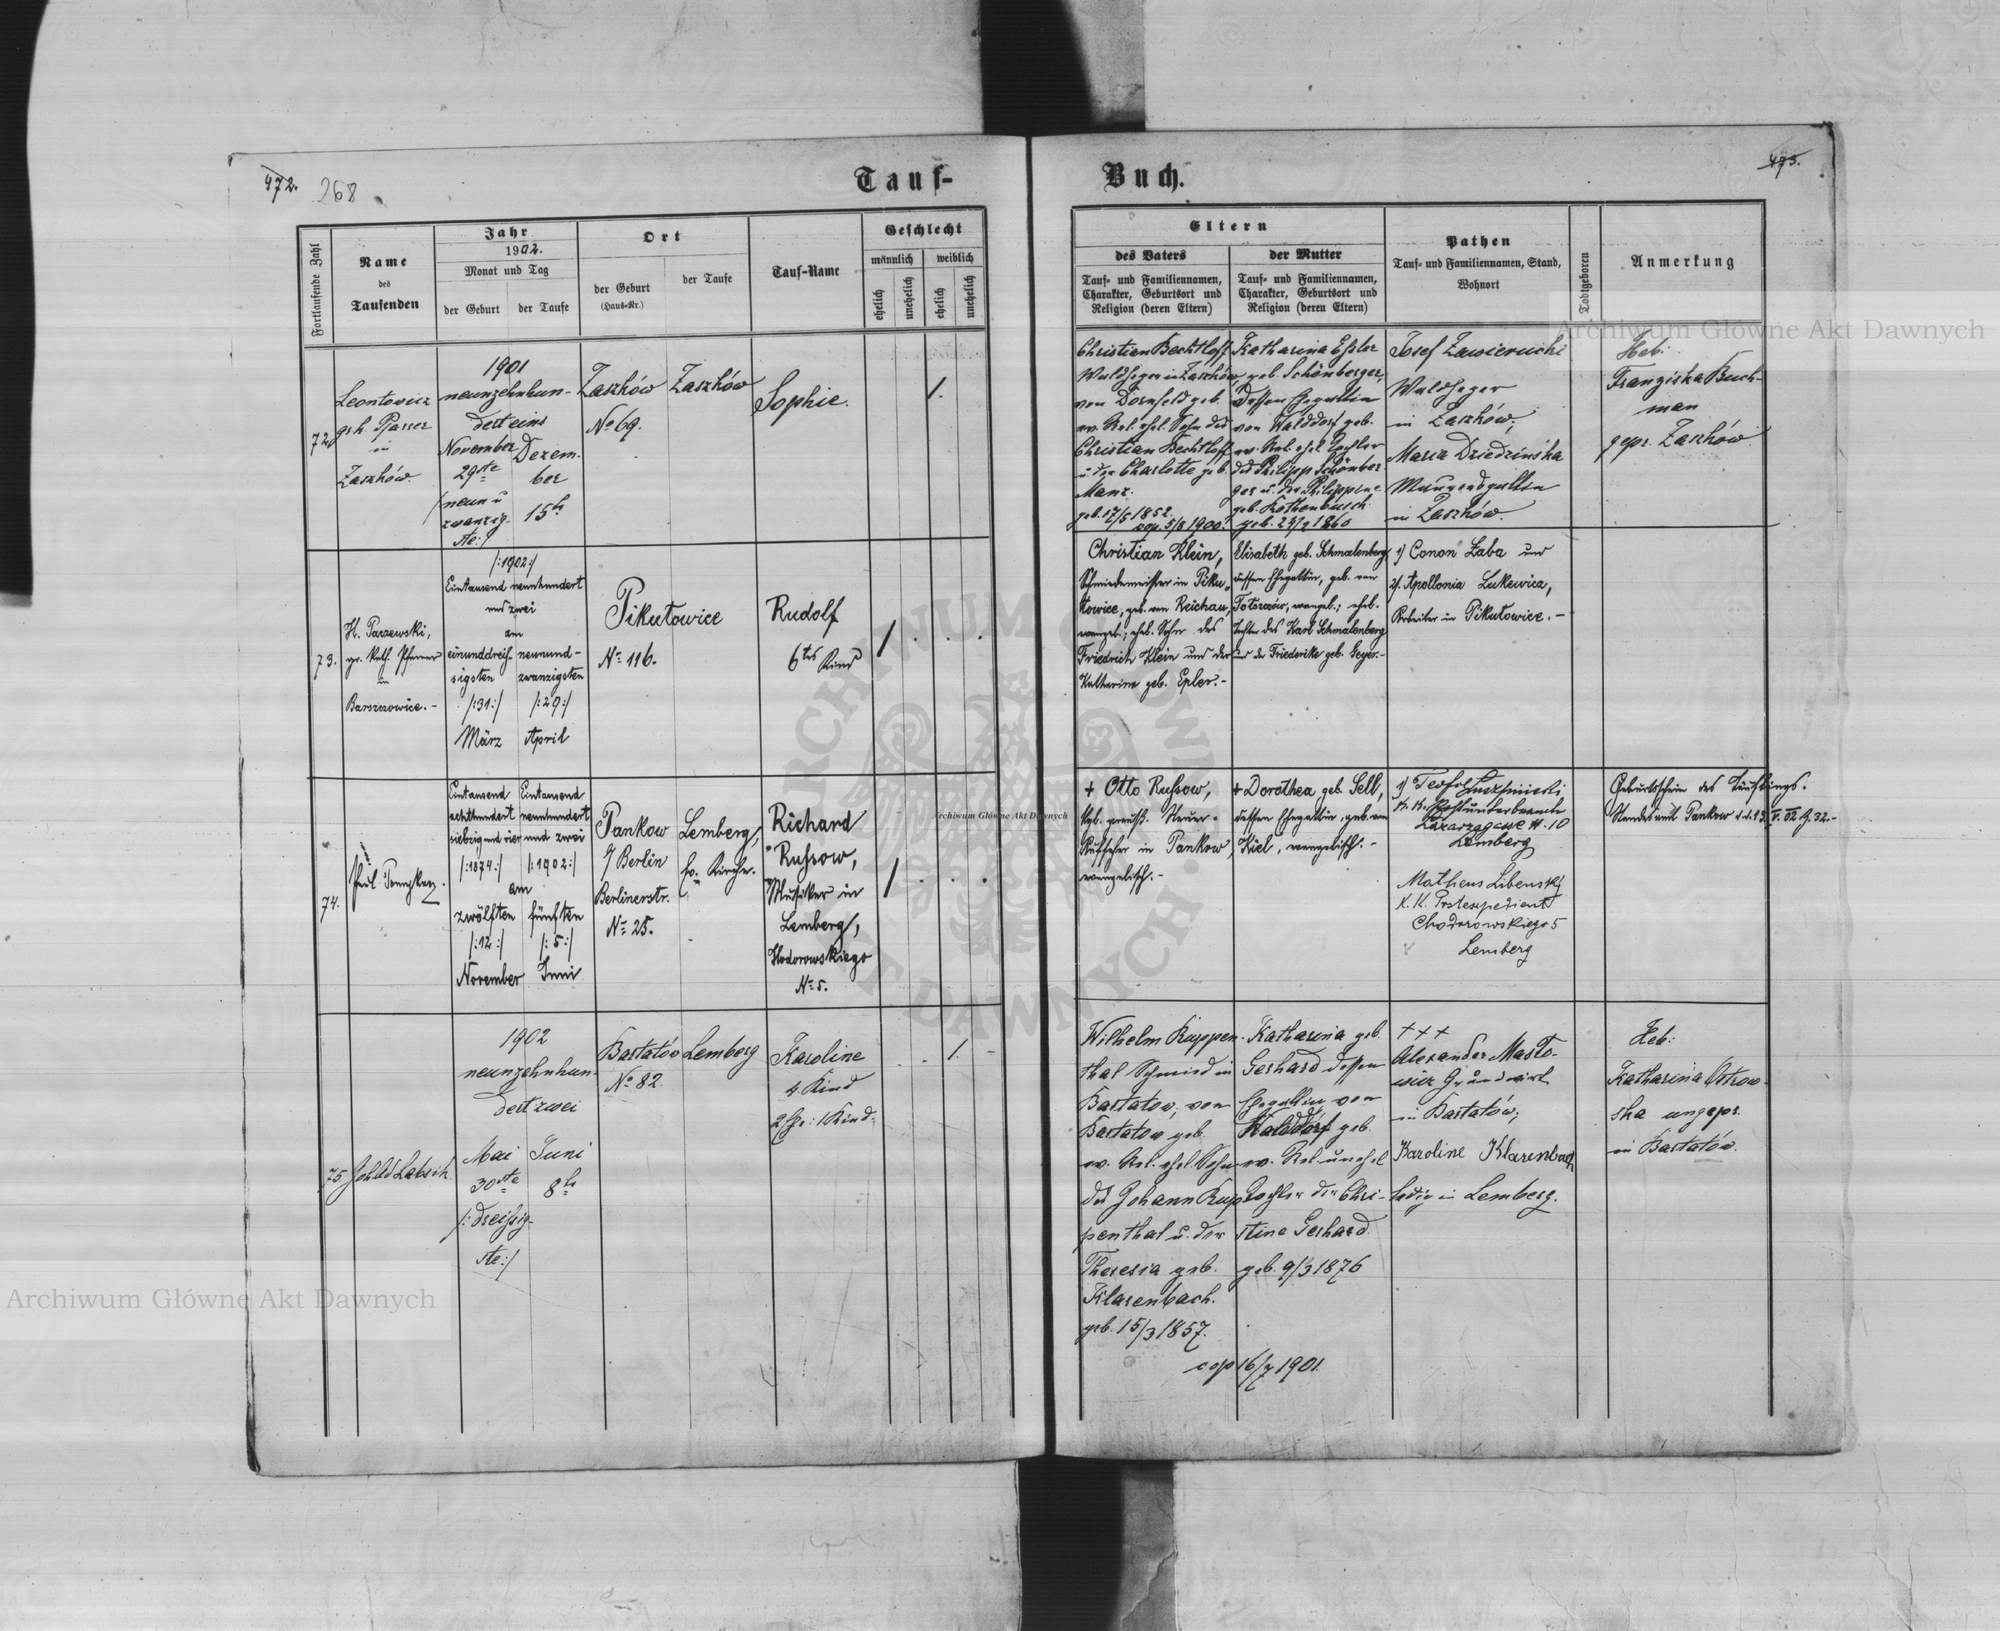 472.
268
Tauf-
Buch.
473.
Fortlaufende Zahl
Name
des
Taufenden
Jahr
1902.
Monat und Tag
der Geburt
der Taufe
Ort
der Geburt
(Haus-Nr.)
der Taufe
Tauf-Name
Geschlecht
männlich
weiblich
ehelich
unehelich
ehelich
unehelich
Eltern
des Vaters
Tauf- und Familiennamen,
Charakter, Geburtsort und
Religion (deren Eltern)
der Mutter
Tauf- und Familiennamen,
Charakter, Geburtsort und
Religion (deren Eltern)
Pathen
Tauf- und Familiennamen, Stand,
Wohnort
Todtgeboren
Anmerkung
72.
Leontowicz
Pfarrer
in
Zaszków
1901
neunzehnhun-
dert eins
November
29te
/:neun u
zwanzig-
ste:/
Dezem-
ber
15h
Zaszków
No 69.
Zaszków
Sophie.
1.
Christian Bechtloff
Waldheger in Zaszków,
von Dornfeld geb.
ev. Rel. ehel. Sohn des
Christian Bechtloff
u. der Charlotte geb.
Manz.
geb. 17/5 1852.
cop. 5/8 1900.
Katharina
geb. Schönberger,
dessen Ehegattin
von Walddorf geb.
ev. Rel. ehel. Tochter
des Philipp Schönber
ger u. der Philippine
geb. Kothenbusch
geb. 1860
Josef Zawierucki
Waldheger
in Zaszków;
Maria Dziedzińska
in Zaszków.
Heb:
Franziska Buch-
man
gepr. Zaszków
73.
H. Parzewski,
gr. kath. Pfarrer
in
Barszczowice.-
/:1902:/
Eintausend neunhundert
und zwei
am
einunddreis-
sigsten
/:31:/
März
neunund-
zwanzigsten
/:29:/
April
Pikułowice
No 116.
Rudolf
6tes Kind
1
Christian Klein,
Schmiedemeister in Piku-
łowice, geb. von Reichau,
evangel.; ehel. Sohn des
Friedrich Klein und der
Katharina geb. Epler.-
Elisabeth geb. Schmalenberg
dessen Ehegattin, geb. von
evangel.; ehel.
Tochter des Karl Schmalenberg
und der Friederika geb. Geyer.-
1) Conon Żaba und
2). Apollonia Lukewicz,
Arbeiter in Pikułowice.-
74.
Eintausend
achthundert
siebzig und vier
/:1874:/
am
zwölften
/:12:/
November
Eintausend
neunhundert
und zwei
/:1902:/
fünften
/:5:/
Juni
Pankow
b/ Berlin
Berlinerstr.
No 25.
Lemberg,
ev. Kirche.
Richard
Russow,
Musiker in
Lemberg,
Hodorowskiego
No 5.
1
+ Otto Russow,
Kgl. preuß. Steuer-
Aufseher in Pankow,
evangelisch.-
+ Dorothea geb. Sell,
dessen Ehegattin, geb. von
Kiel, evangelisch.-
1) Teofol
K. K. Postunterbeamte
Lazarzagasse N. 10
Lemberg
Matheus Libenski
K. K. Postexpedient
Chodorowskiego 5
Lemberg
Geburtsschein des Täuflings.
Standesamt Pankow
75.
1902
neunzehnhun-
dert zwei
Mai
30ste
/:dreißig-
ste:/
Juni
8h
Bartatów
No 82.
Lemberg
Karoline
4. Kind
2 Ehe: 1 Kind
1.
Wilhelm Kuppen-
thal Schmied in
Bartatow, von
Bartatow geb.
ev. Rel. ehel. Sohn
des Johann Kup
penthal u. der
Theresia geb.
Klarenbach.
geb. 15/3 1857.
cop 16/7 1901.
Katharina geb.
Gerhard dessen
Ehegattin von
Walddorf geb.
ev. Rel. unehel
Tochter der Chri-
stine Gerhard.
geb. 9/3 1876
+++
Alexander Masto-
wicz Grundwirt
in Bartatów;
Karoline Klarenbach
ledig in Lemberg.
Heb:
Katharina Ostrow-
ska ungepr.
in Bartatów.
Archiwum Główne Akt Dawnych
Archiwum Główne Akt Dawnych
Archiwum Główne Akt Dawnych